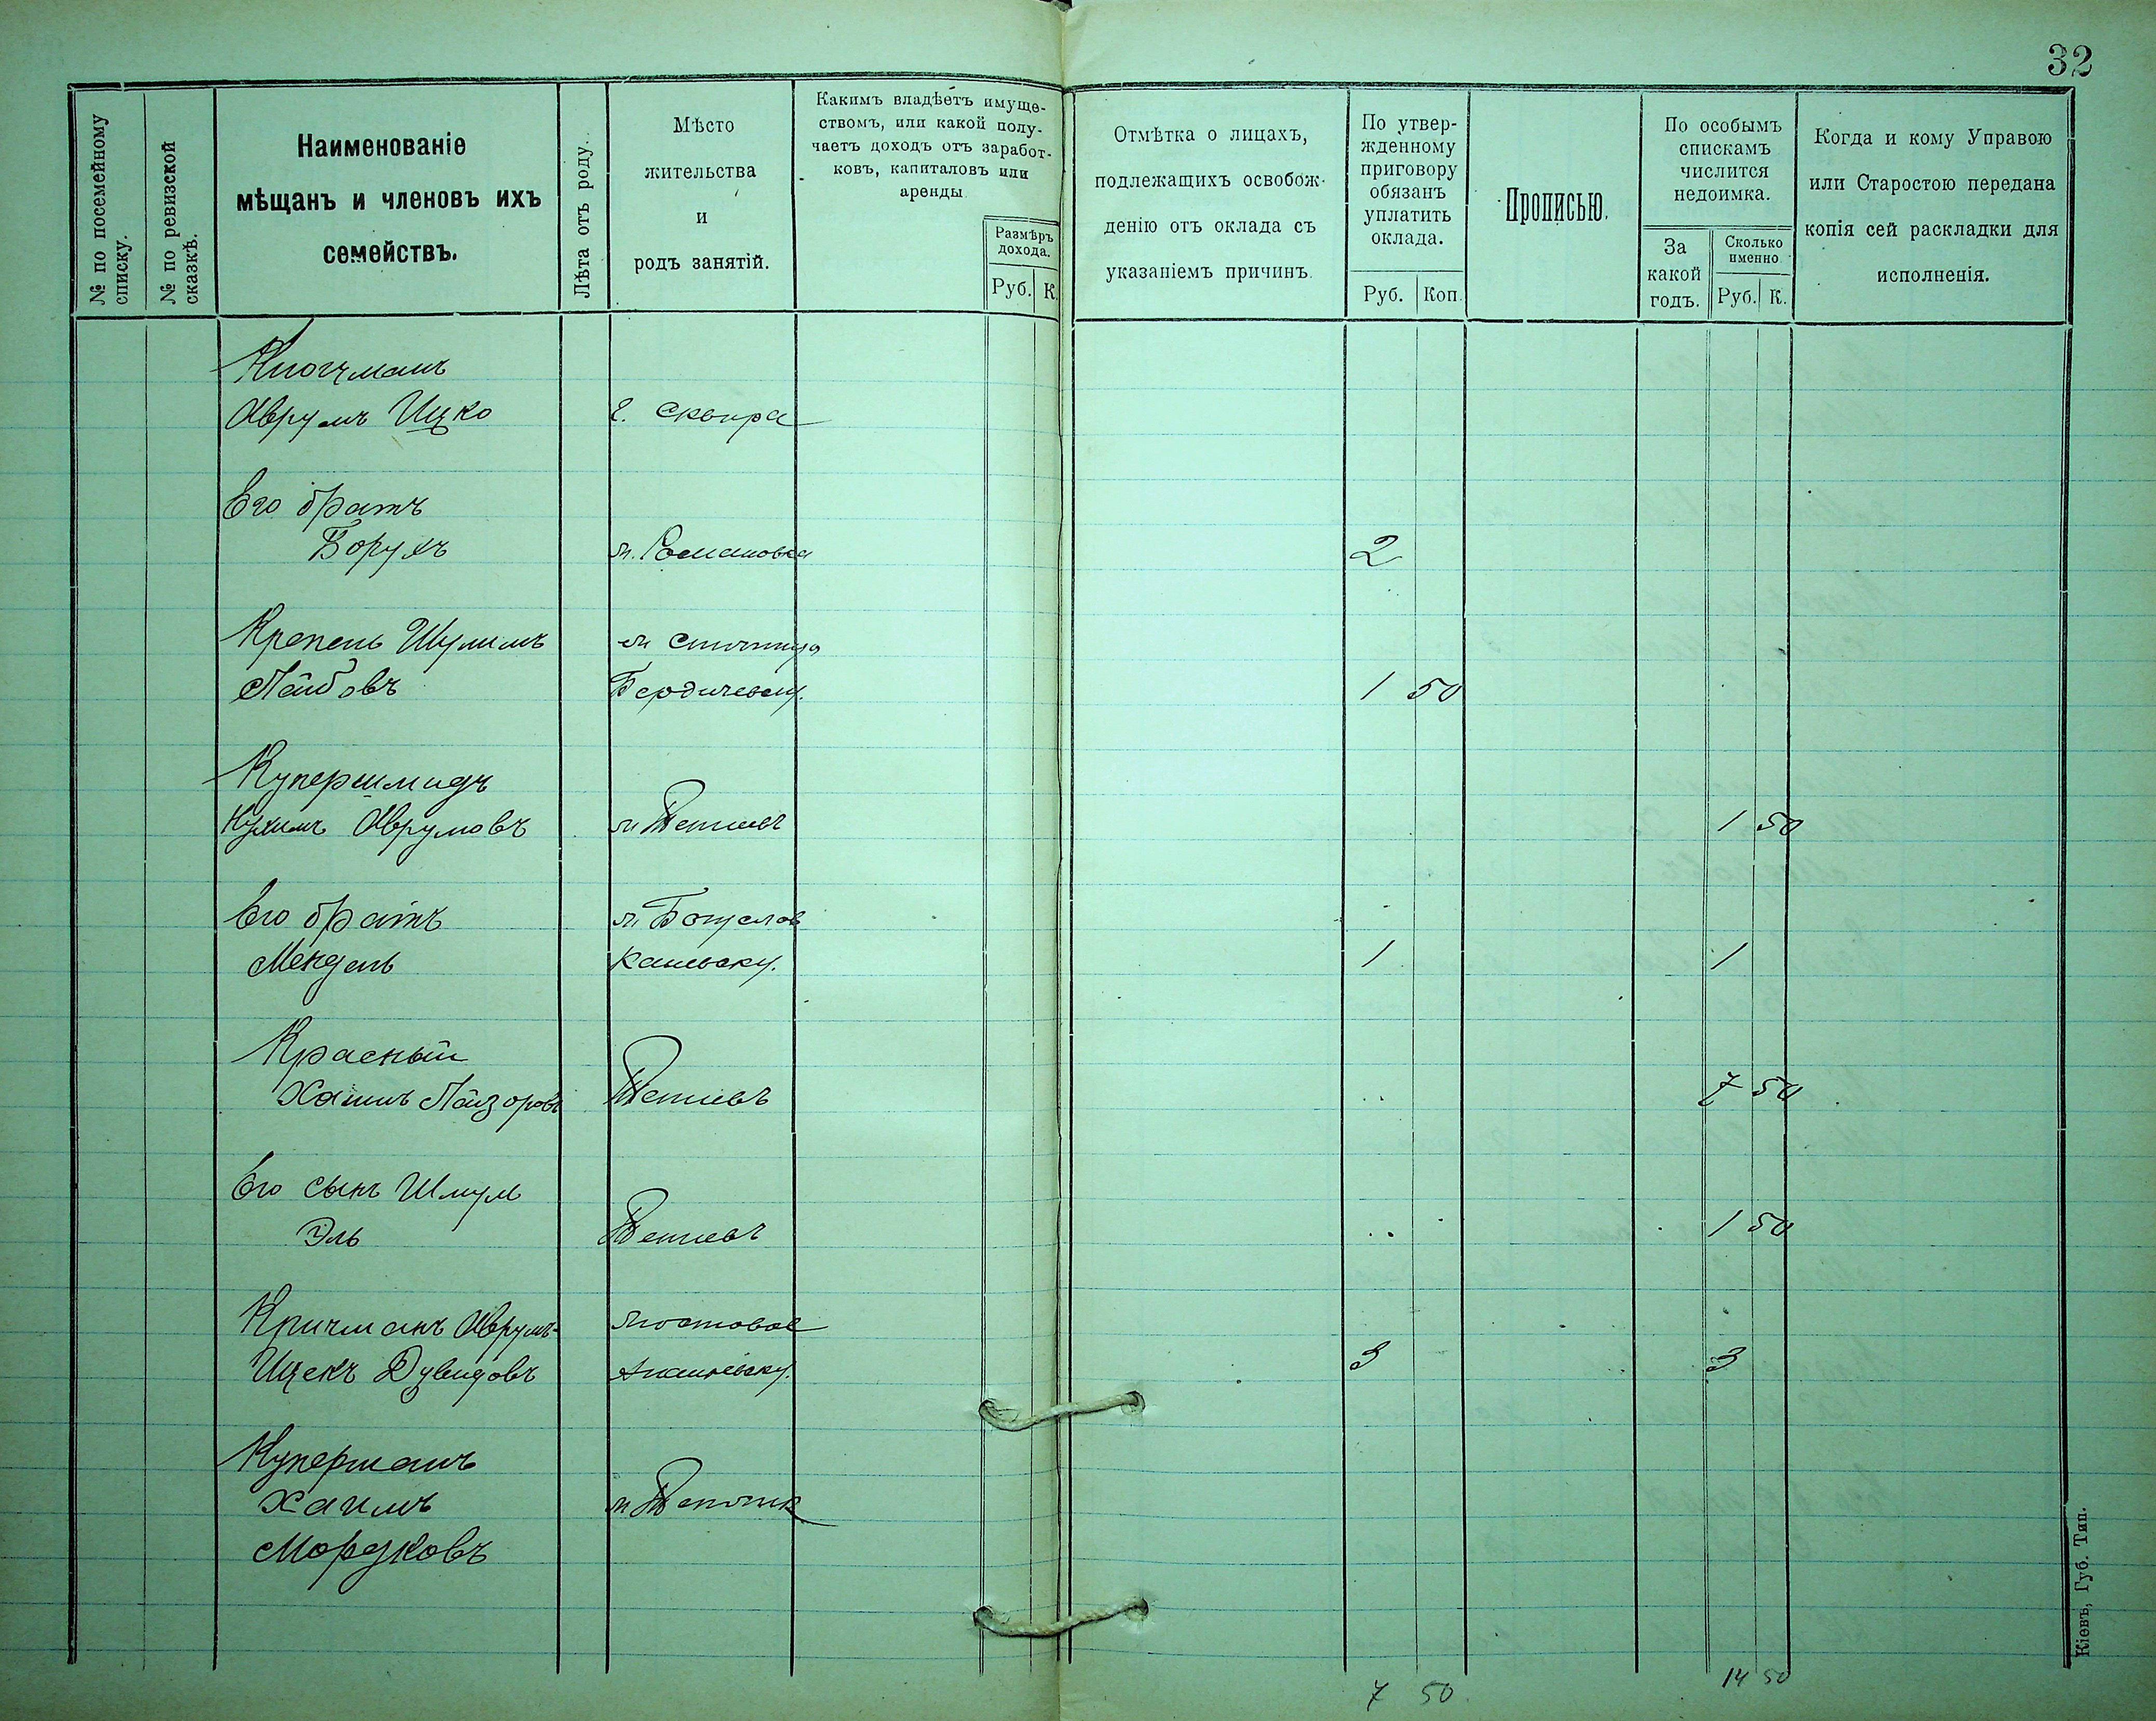 32
№ по посемейному списку.
№ по ревизской сказкѣ.
Наименованіе
мѣщанъ и членовъ ихъ
семействъ.
Лѣта отъ роду.
Мѣсто
жительства
и
родъ занятій.
Какимъ владѣетъ имуще-
ствомъ, или какой полу-
чаетъ доходъ отъ заработ-
ковъ, капиталовъ или
аренды
Размѣръ
дохода.
Руб. К.
Отмѣтка о лицахъ,
подлежащихъ освобож-
денію отъ оклада съ
указаніемъ причинъ.
По утвер-
жденному
приговору
обязанъ
уплатить
оклада.
Руб. Коп.
Прописью.
По особымъ
спискамъ
числится
недоимка.
За
какой
годъ.
Сколько
именно
Руб. К.
Когда и кому Управою
или Старостою передана
копія сей раскладки для
исполненія.
Аврумъ Ицко г. Сквира
Его братъ
Борухъ м. Романовка 2
Крепель Шулимъ м
Лейбовъ Бердичевск у. 1 50
Купершмидъ
Нухимъ Аврумовъ м Тетіевъ 1 50
Его братъ м Богуслав
Мендель Каневск у. 1 1
Красный
Хаимъ Лейзоровъ Тетіевъ 7 50
Его сынъ Шмул
Эль Тетіевъ 1 50
Кричманъ Аврумъ- Мостовое
Ицекъ Дувидовъ Ананьевск у. 3 3
Куперманъ
Хаимъ м
Мордковъ
7 50
14 50
Кіевъ, Губ. Тип.